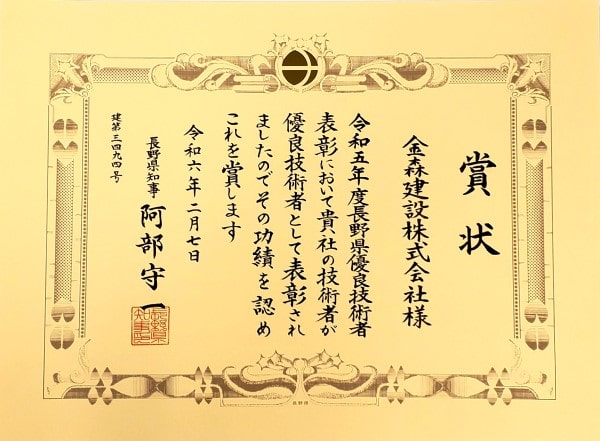 賞状
金森建設株式会社様
令和五年度長野県優良技術者
表彰において貴社の技術者が
優良技術者として表彰され
ましたのでその功績を認め
これを賞します
令和六年二月七日
長野県知事 阿部守一
建第三四九四号
長野県知事印
長野県